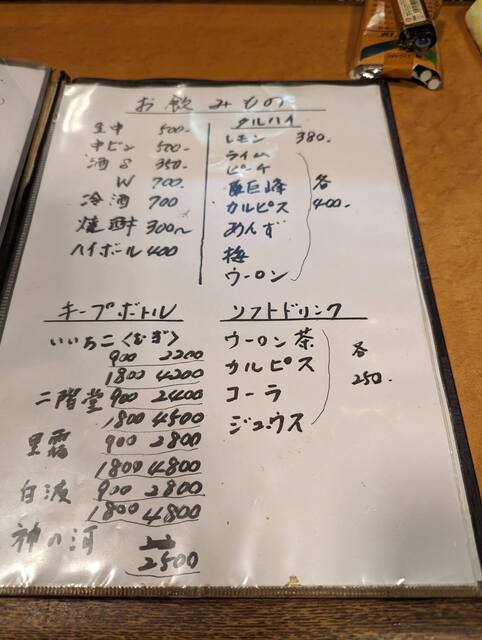 お飲みもの
生中 500-
中ビン 500-
酒 S 350-
W 700.
冷酒 700
焼酎 300〜
ハイボール 400
タルハイ
レモン 380.
ライム
ピーチ
巨峰
カルピス
あんず
梅
ウーロン
各
400-
キープボトル
いいちこ〈むぎ〉
900 2200
1800 4200
二階堂 900 2400
1800 4500
黒霧 900 2800
1800 4800
白波 900 2800
1800 4800
神の河
2500
ソフトドリンク
ウーロン茶
カルピス
コーラ
ジュウス
各
250-